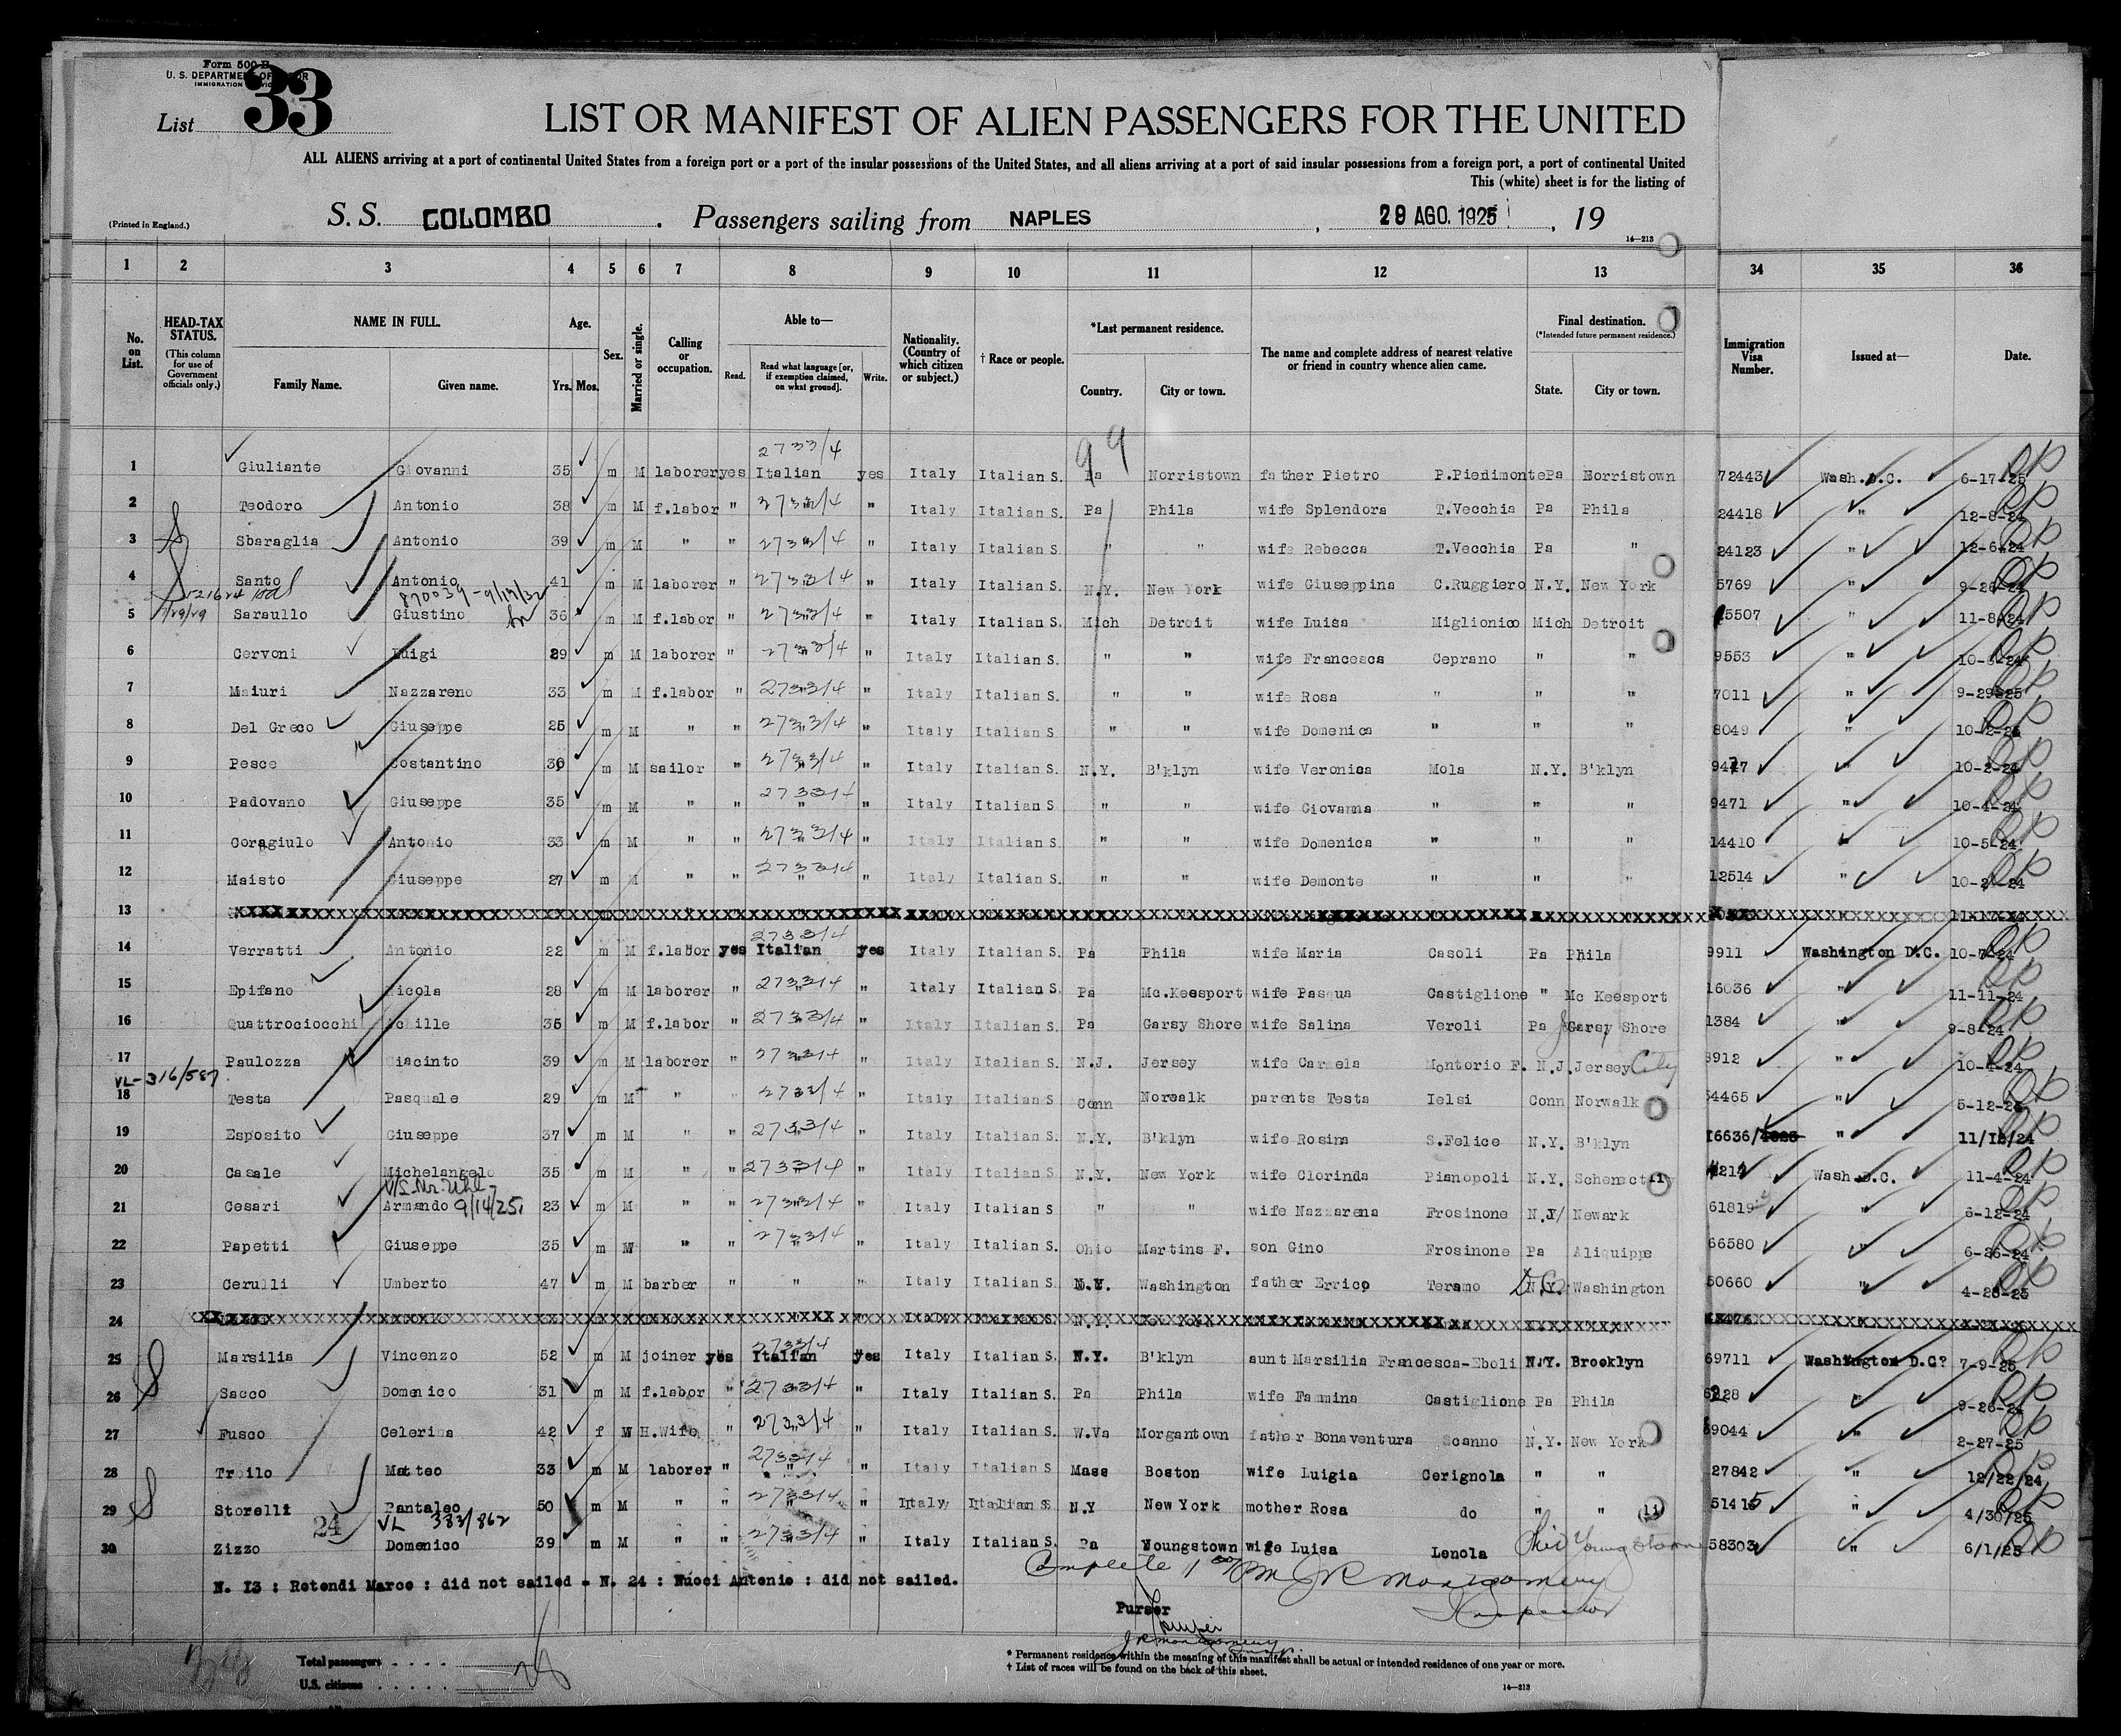 Form 500 B
U. S. DEPARTMENT OF LABOR
IMMIGRATION SERVICE
List 33
LIST OR MANIFEST OF ALIEN PASSENGERS FOR THE UNITED
ALL ALIENS arriving at a port of continental United States from a foreign port or a port of the insular possessions of the United States, and all aliens arriving at a port of said insular possessions from a foreign port, a port of continental United
This (white) sheet is for the listing of
(Printed in England.) S. S. COLOMBO . Passengers sailing from NAPLES , 29 AGO. 1925 , 19
14—213
1 2 3 4 5 6 7 8 9 10 11 12 13 34 35 36
No. on List. HEAD-TAX STATUS. (This column for use of Government officials only.) NAME IN FULL. Family Name. Given name. Age. Yrs. Mos. Sex. Married or single. Calling or occupation. Able to— Read. Read what language [or, if exemption claimed, on what ground]. Write. Nationality. (Country of which citizen or subject.) † Race or people. *Last permanent residence. Country. City or town. The name and complete address of nearest relative or friend in country whence alien came. Final destination. (*Intended future permanent residence.) State. City or town. Immigration Visa Number. Issued at— Date.
99
1 Giuliante Giovanni 35 m M laborer yes Italian 27 33/4 yes Italy Italian S. Pa Norristown father Pietro P.Piedimonte Pa Norristown 72443 Wash.D.C. 6-17-25
2 Teodoro Antonio 38 m M f.labor " 2733/4 " Italy Italian S. Pa Phila wife Splendora T.Vecchia Pa Phila 24418 " 12-8-24
3 Sbaraglia Antonio 39 m M " " 2733/4 " Italy Italian S. " " wife Rebecca T.Vecchia Pa " 24123 " 12-6-24
4 Santo Antonio 41 m M laborer " 2733/4 " Italy Italian S. N.Y. New York wife Giuseppina C.Ruggiero N.Y. New York 5769 " 9-26-24
7/29/29 870039-9/17/32
5 Saraullo Giustino 36 m M f.labor " 2733/4 " Italy Italian S. Mich Detroit wife Luisa Miglionico Mich Detroit 5507 " 11-8-24
6 Cervoni Luigi 29 m M laborer " 2733/4 " Italy Italian S. " " wife Francesca Ceprano " " 9553 " 10-6-24
7 Maiuri Nazzareno 33 m M f.labor " 2733/4 " Italy Italian S. " " wife Rosa " " " 7011 " 9-29-25
8 Del Greco Giuseppe 25 m M " " 2733/4 " Italy Italian S. " " wife Domenica " " " 8049 " 10-2-24
9 Pesce Costantino 30 m M sailor " 2733/4 " Italy Italian S. N.Y. B'klyn wife Veronica Mola N.Y. B'klyn 9427 " 10-2-24
10 Padovano Giuseppe 35 m M " " 2733/4 " Italy Italian S. " " wife Giovanna " " " 9471 " 10-4-24
11 Coragiulo Antonio 33 m M " " 2733/4 " Italy Italian S. " " wife Domenica " " " 14410 " 10-5-24
12 Maisto Giuseppe 27 m M " " 2733/4 " Italy Italian S. " " wife Demonte " " " 12514 " 10-2-24
13
14 Verratti Antonio 22 m M f.labor yes Italian 2733/4 yes Italy Italian S. Pa Phila wife Maria Casoli Pa Phila 9911 Washington D.C. 10-7-24
15 Epifano Nicola 28 m M laborer " 2733/4 " Italy Italian S. Pa Mc.Keesport wife Pasqua Castiglione " Mc Keesport 16036 " 11-11-24
16 Quattrociocchi Achille 35 m M f.labor " 2733/4 " Italy Italian S. Pa Garsy Shore wife Salina Veroli Pa Garsy Shore 1384 " 9-8-24
17 Paulozza Giacinto 39 m M laborer " 2733/4 " Italy Italian S. N.J. Jersey wife Carmela Montorio F. N.J. Jersey City 3912 " 10-4-24
VL-316/587
18 Testa Pasquale 29 m M " " 2733/4 " Italy Italian S Conn Norwalk parents Testa Ielsi Conn Norwalk 54465 " 5-12-25
19 Esposito Giuseppe 37 m M " " 2733/4 " Italy Italian S. N.Y. B'klyn wife Rosina S.Felice N.Y. B'klyn 16636/ " 11/18/24
20 Casale Michelangelo 35 m M " " 2733/4 " Italy Italian S. N.Y. New York wife Clorinda Pianopoli N.Y. Schenect Wash.D.C. 11-4-24
21 Cesari Armando 9/14/25 23 m M " " 2733/4 " Italy Italian S " " wife Nazzarena Frosinone N.J/ Newark 61819 " 6-12-24
22 Papetti Giuseppe 35 m M " " 2733/4 " Italy Italian S. Ohio Martins F. son Gino Frosinone Pa Aliquippe 66580 " 6-26-24
23 Cerulli Umberto 47 m M barber " " " Italy Italian S. N.Y. Washington father Errico Teramo D.C. N.Y. Washington 50660 " 4-28-25
24
25 Marsilia Vincenzo 52 m M joiner yes Italian 2733/4 yes Italy Italian S. N.Y. B'klyn aunt Marsilia Francesca-Eboli N.Y. Brooklyn 69711 Washington D.C? 7-9-25
26 Sacco Domenico 31 m M f.labor " 2733/4 " Italy Italian S. Pa Phila wife Fammina Castiglione Pa Phila 6228 " 9-26-24
27 Fusco Celerina 42 f M H.Wife " 2733/4 " Italy Italian S. W.Va Morgantown father Bonaventura Scanno N.Y. New York 39044 " 2-27-25
28 Troilo Matteo 33 m M laborer " 2733/4 " Italy Italian S Mass Boston wife Luigia Cerignola " " 27842 " 12/22/24
29 Storelli Pantaleo 50 m M " " 2733/4 " Italy Italian S. N.Y New York mother Rosa do " " 51415 " 4/30/25
24 VL 383/862
30 Zizzo Domenico 39 m M " " 2733/4 " Italy Italian S. Pa Youngstown wige Luisa Lenola Ohio Youngstown 58303 " 6/1/25
N. I3 : Rotondi Marco : did not sailed - N. 24 : Nucci Antonio : did not sailed.
Complete 1 00 PM J R Montgomery
Inspector
Purser
J R Montgomery
Total passengers . . . .
U.S. citizens . . . . .
* Permanent residence within the meaning of this manifest shall be actual or intended residence of one year or more.
† List of races will be found on the back of this sheet.
14—213